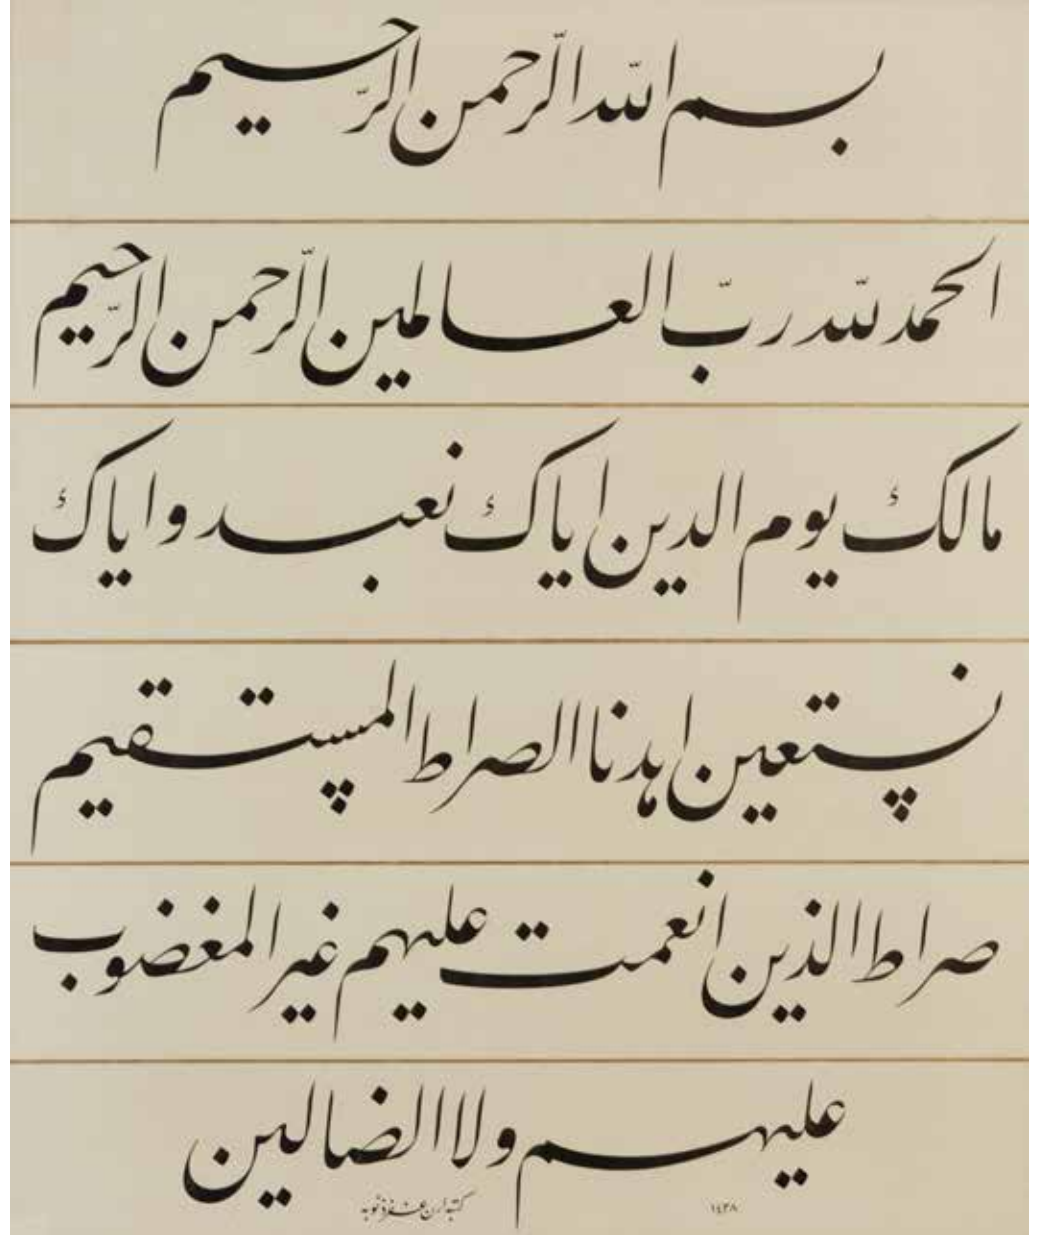 بسم الله الرحمن الرحيم
الحمد لله رب العالمين الرحمن الرحيم
مالك يوم الدين اياك نعبد واياك
نستعين اهدنا الصراط المستقيم
صراط الذين انعمت عليهم غير المغضوب
عليهم ولا الضالين
١٤٣٨